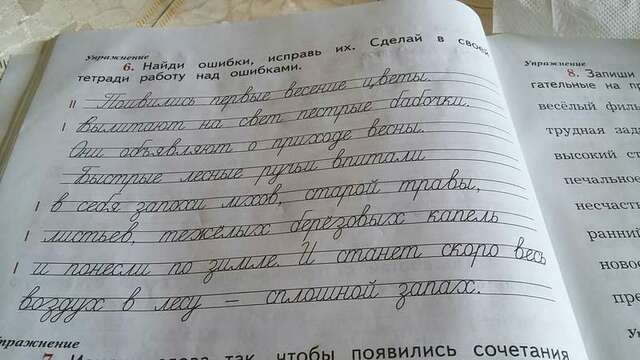 Упражнение
6. Найди ошибки, исправь их. Сделай в своей
тетради работу над ошибками.
II Поивились первые весение цветы.
I Вылитают на свет пестрые бабочки.
Они объявляют о приходе весны.
Быстрые лесные ручьи впитали
I в себя запохи мхов, старой травы,
I листьев, тежёлых березовых капель
I и понесли по зимле. И станет скоро весь
воздух в лесу – сплошной запах.
пражнение
так, чтобы появились сочетания
Упражнение
8. Запиши
гательные на пр
весёлый фил
трудная зад
высокий ст
печальное
несчаст
ранний
новое
пре